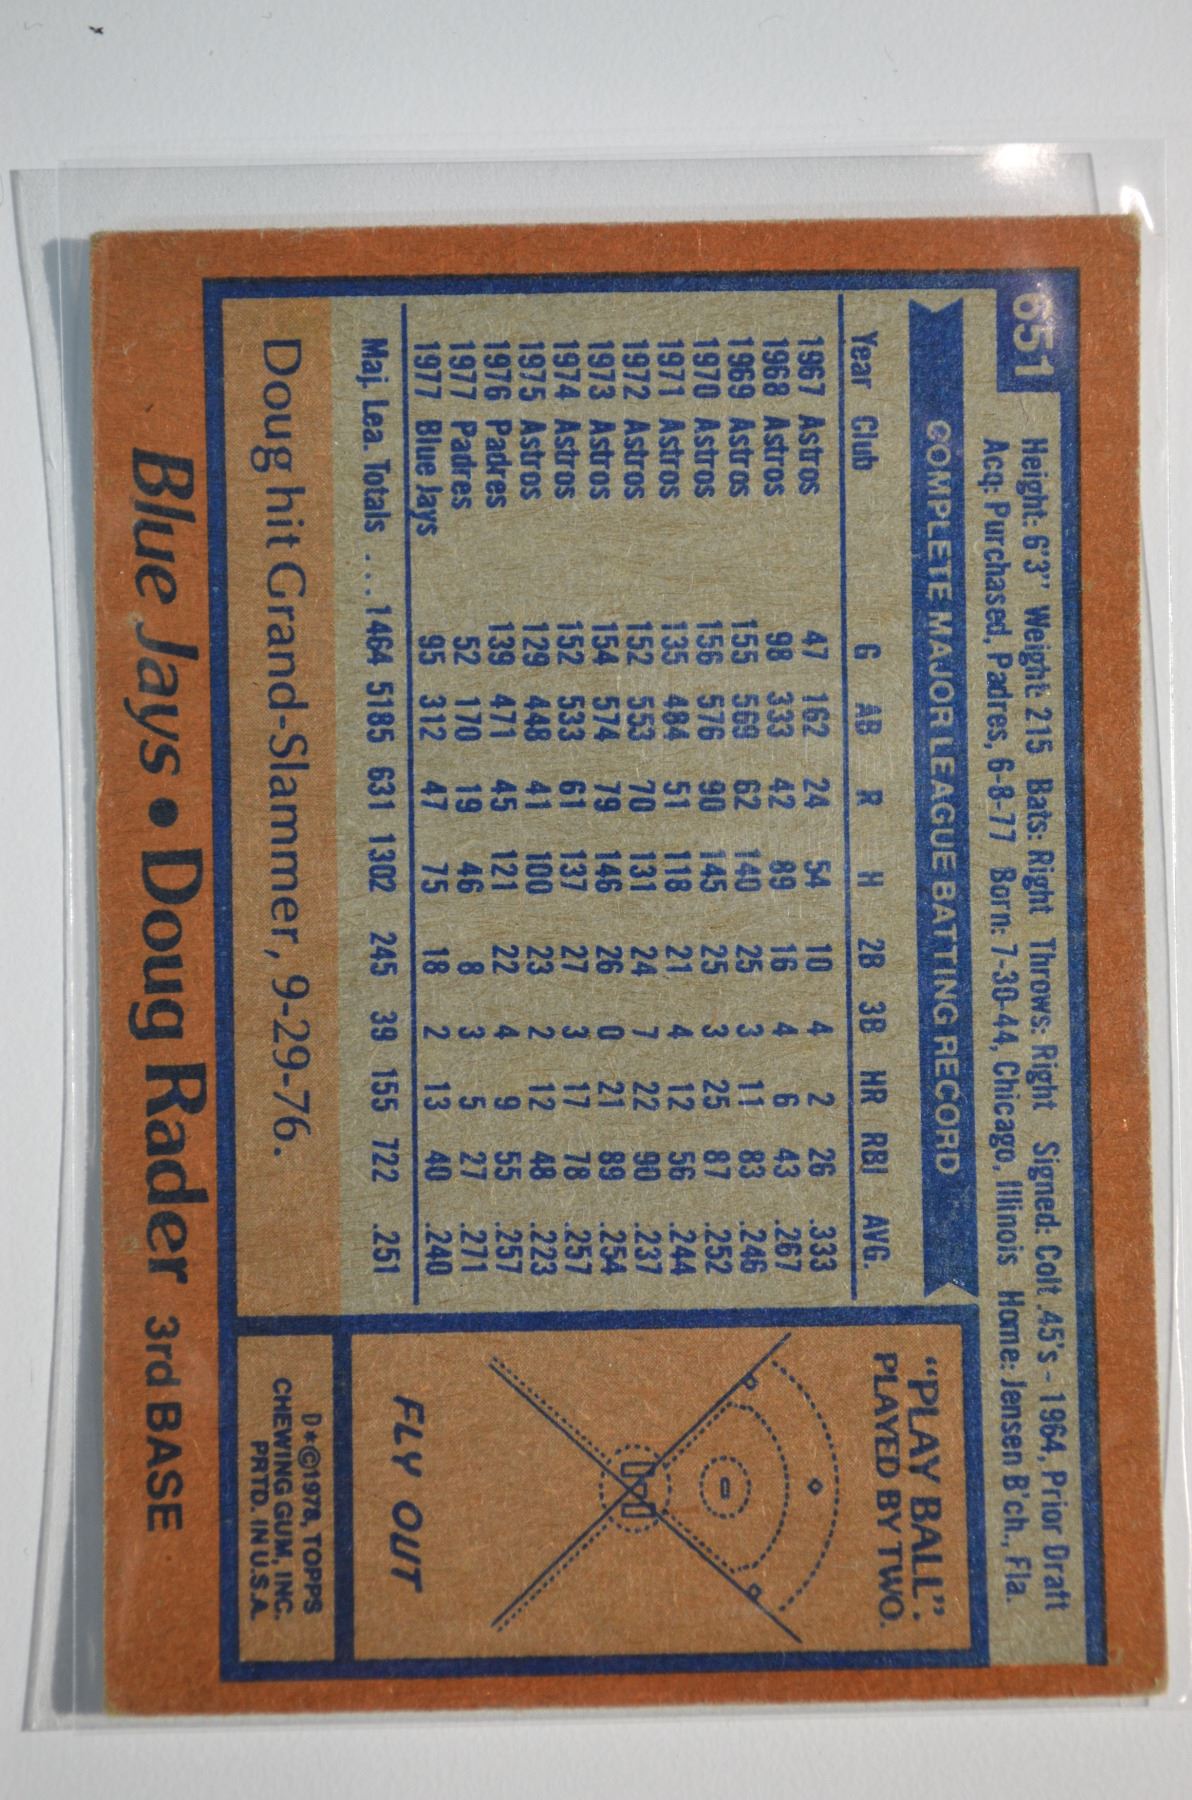 651
Height: 6'3" Weight: 215 Bats: Right Throws: Right Signed: Colt .45's - 1964, Prior Draft
Acq: Purchased, Padres, 6-8-77 Born: 7-30-44, Chicago, Illinois Home: Jensen B'ch., Fla.
COMPLETE MAJOR LEAGUE BATTING RECORD
Year Club G AB R H 2B 3B HR RBI AVG.
1967 Astros 47 162 24 54 10 4 2 26 .333
1968 Astros 98 333 42 89 16 4 6 43 .267
1969 Astros 155 569 62 140 25 3 11 83 .246
1970 Astros 156 576 90 145 25 3 25 87 .252
1971 Astros 135 484 51 118 21 4 12 56 .244
1972 Astros 152 553 70 131 24 7 22 90 .237
1973 Astros 154 574 79 146 26 0 21 89 .254
1974 Astros 152 533 61 137 27 3 17 78 .257
1975 Astros 129 448 41 100 23 2 12 48 .223
1976 Padres 139 471 45 121 22 4 9 55 .257
1977 Padres 52 170 19 46 8 3 5 27 .271
1977 Blue Jays 95 312 47 75 18 2 13 40 .240
Maj. Lea. Totals ... 1464 5185 631 1302 245 39 155 722 .251
Doug hit Grand-Slammer, 9-29-76.
"PLAY BALL":
PLAYED BY TWO.
FLY OUT
D*©1978, TOPPS
CHEWING GUM, INC.
PRTD. IN U.S.A.
Blue Jays • Doug Rader 3rd BASE